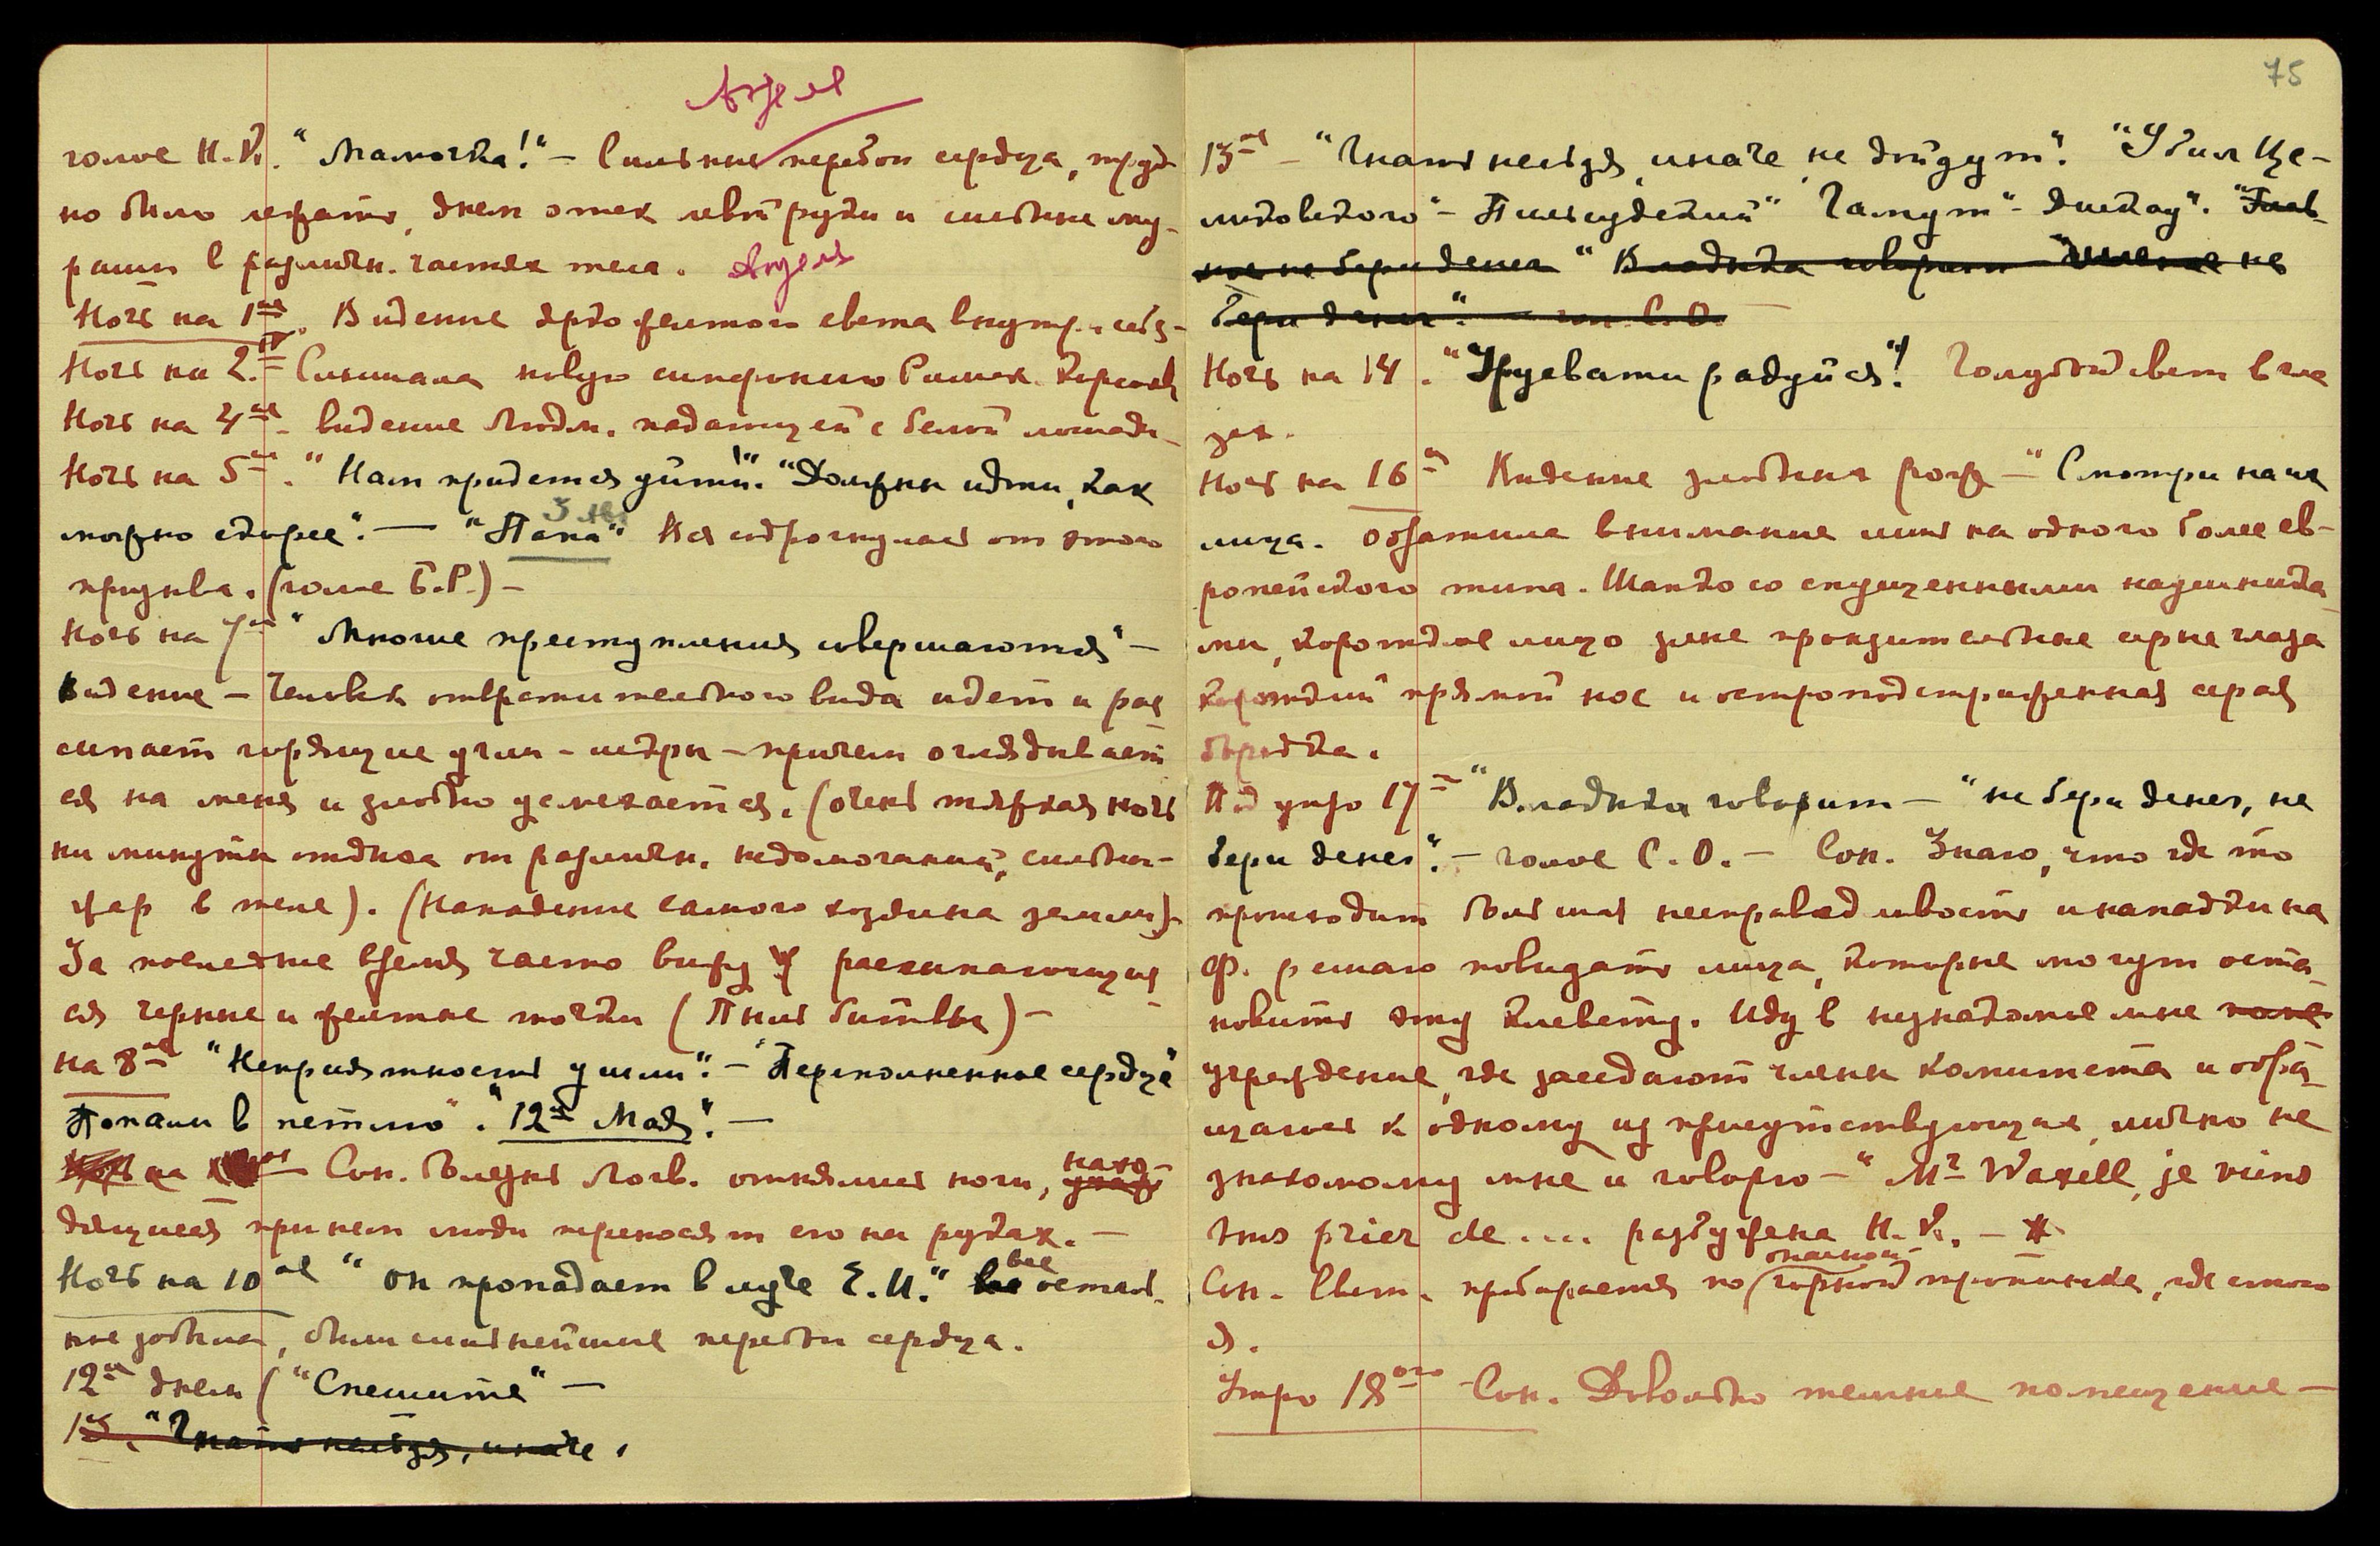 Апрель
голос Н.К. "Мамочка!" – Сильные перебои сердца, труд-
но было лежать, днем отек левой руки и сильные му-
рашки в различн. частях тела. Апрель
Ночь на 1ое. Видение ярко желтого света внутри себя –
Ночь на 2.ое Слышала новую симфонию Римск. Корсаков
Ночь на 4ое – видение Людм. падающей с белой лошади –
Ночь на 5ое. "Нам придется уйти!" "Должны идти, как
можно скорее". – "Папа" Вся содрогнулась от этого
призыва. (голос Б.Р.) –
Ночь на 7ое "Многие преступления совершаются" –
Видение – Человек отвратительного вида идет и рас
сыпает горящие угли – искры – причем оглядывает
ся на меня и злобно усмехается. (очень тяжкая ночь
ни минуты отдыха от различн. недомоганий, сильный
жар в теле). (Нападение самого хозяина земли).
За последнее время часто вижу рассыпающиеся
ся черные и желтые точки (Пыль битвы) –
на 8ое "Неприятности ушли". – "Переполненное сердце"
Попали в петлю". "12ое Мая". –
на Сон. Болезнь Логв. отнялись ноги, нахо-
дящиеся при нем люди переносят его на руках. –
Ночь на 10ое "Он пропадает в луче Е.И." все осталь-
ное забыла, были сильнейшие перебои сердца.
12ое днем ("Спешите" –
13. "Гнать нельзя, иначе,
75
13ое – "Гнать нельзя, иначе не дойдут". "Убил Це-
ликовского" – Пильсудский" Гамут" – Дискау". "Глав-
ное не бери денег" "Владыка говорит – не
бери денег". – гол. С.О.
Ночь на 14. "Урусвати радуйся"! Голубой свет в гла
зах.
Ночь на 16ое Видение злобных рож – "Смотри на их
лица. Обратила внимание лишь на одного более ев-
ропейского типа. Шапко со спущенными наушника-
ми, короткое лицо злые пронзительные серые глаза
короткий прямой нос и остроподстриженная серая
бородка.
Под утро 17ое "Владыка говорит – "не бери денег, не
бери денег". – голос С.О. – Сон. Знаю, что где то
происходит большая несправедливость и нападки на
Ф. решаю повидать лица, которые могут оста-
новить эту клевету. Иду в незнакомое мне
учреждение, где заседают члены комитета и обра-
щаюсь к одному из присутствующих, лично не
знакомому мне и говорю – "Mr Waxell, je viens
vous prier de .... разбужена Н.К. –
Сон. Свет. пробирается по опасной горной тропинке, где стою
я.
Утро 18ого Сон. Довольно темное помещение –